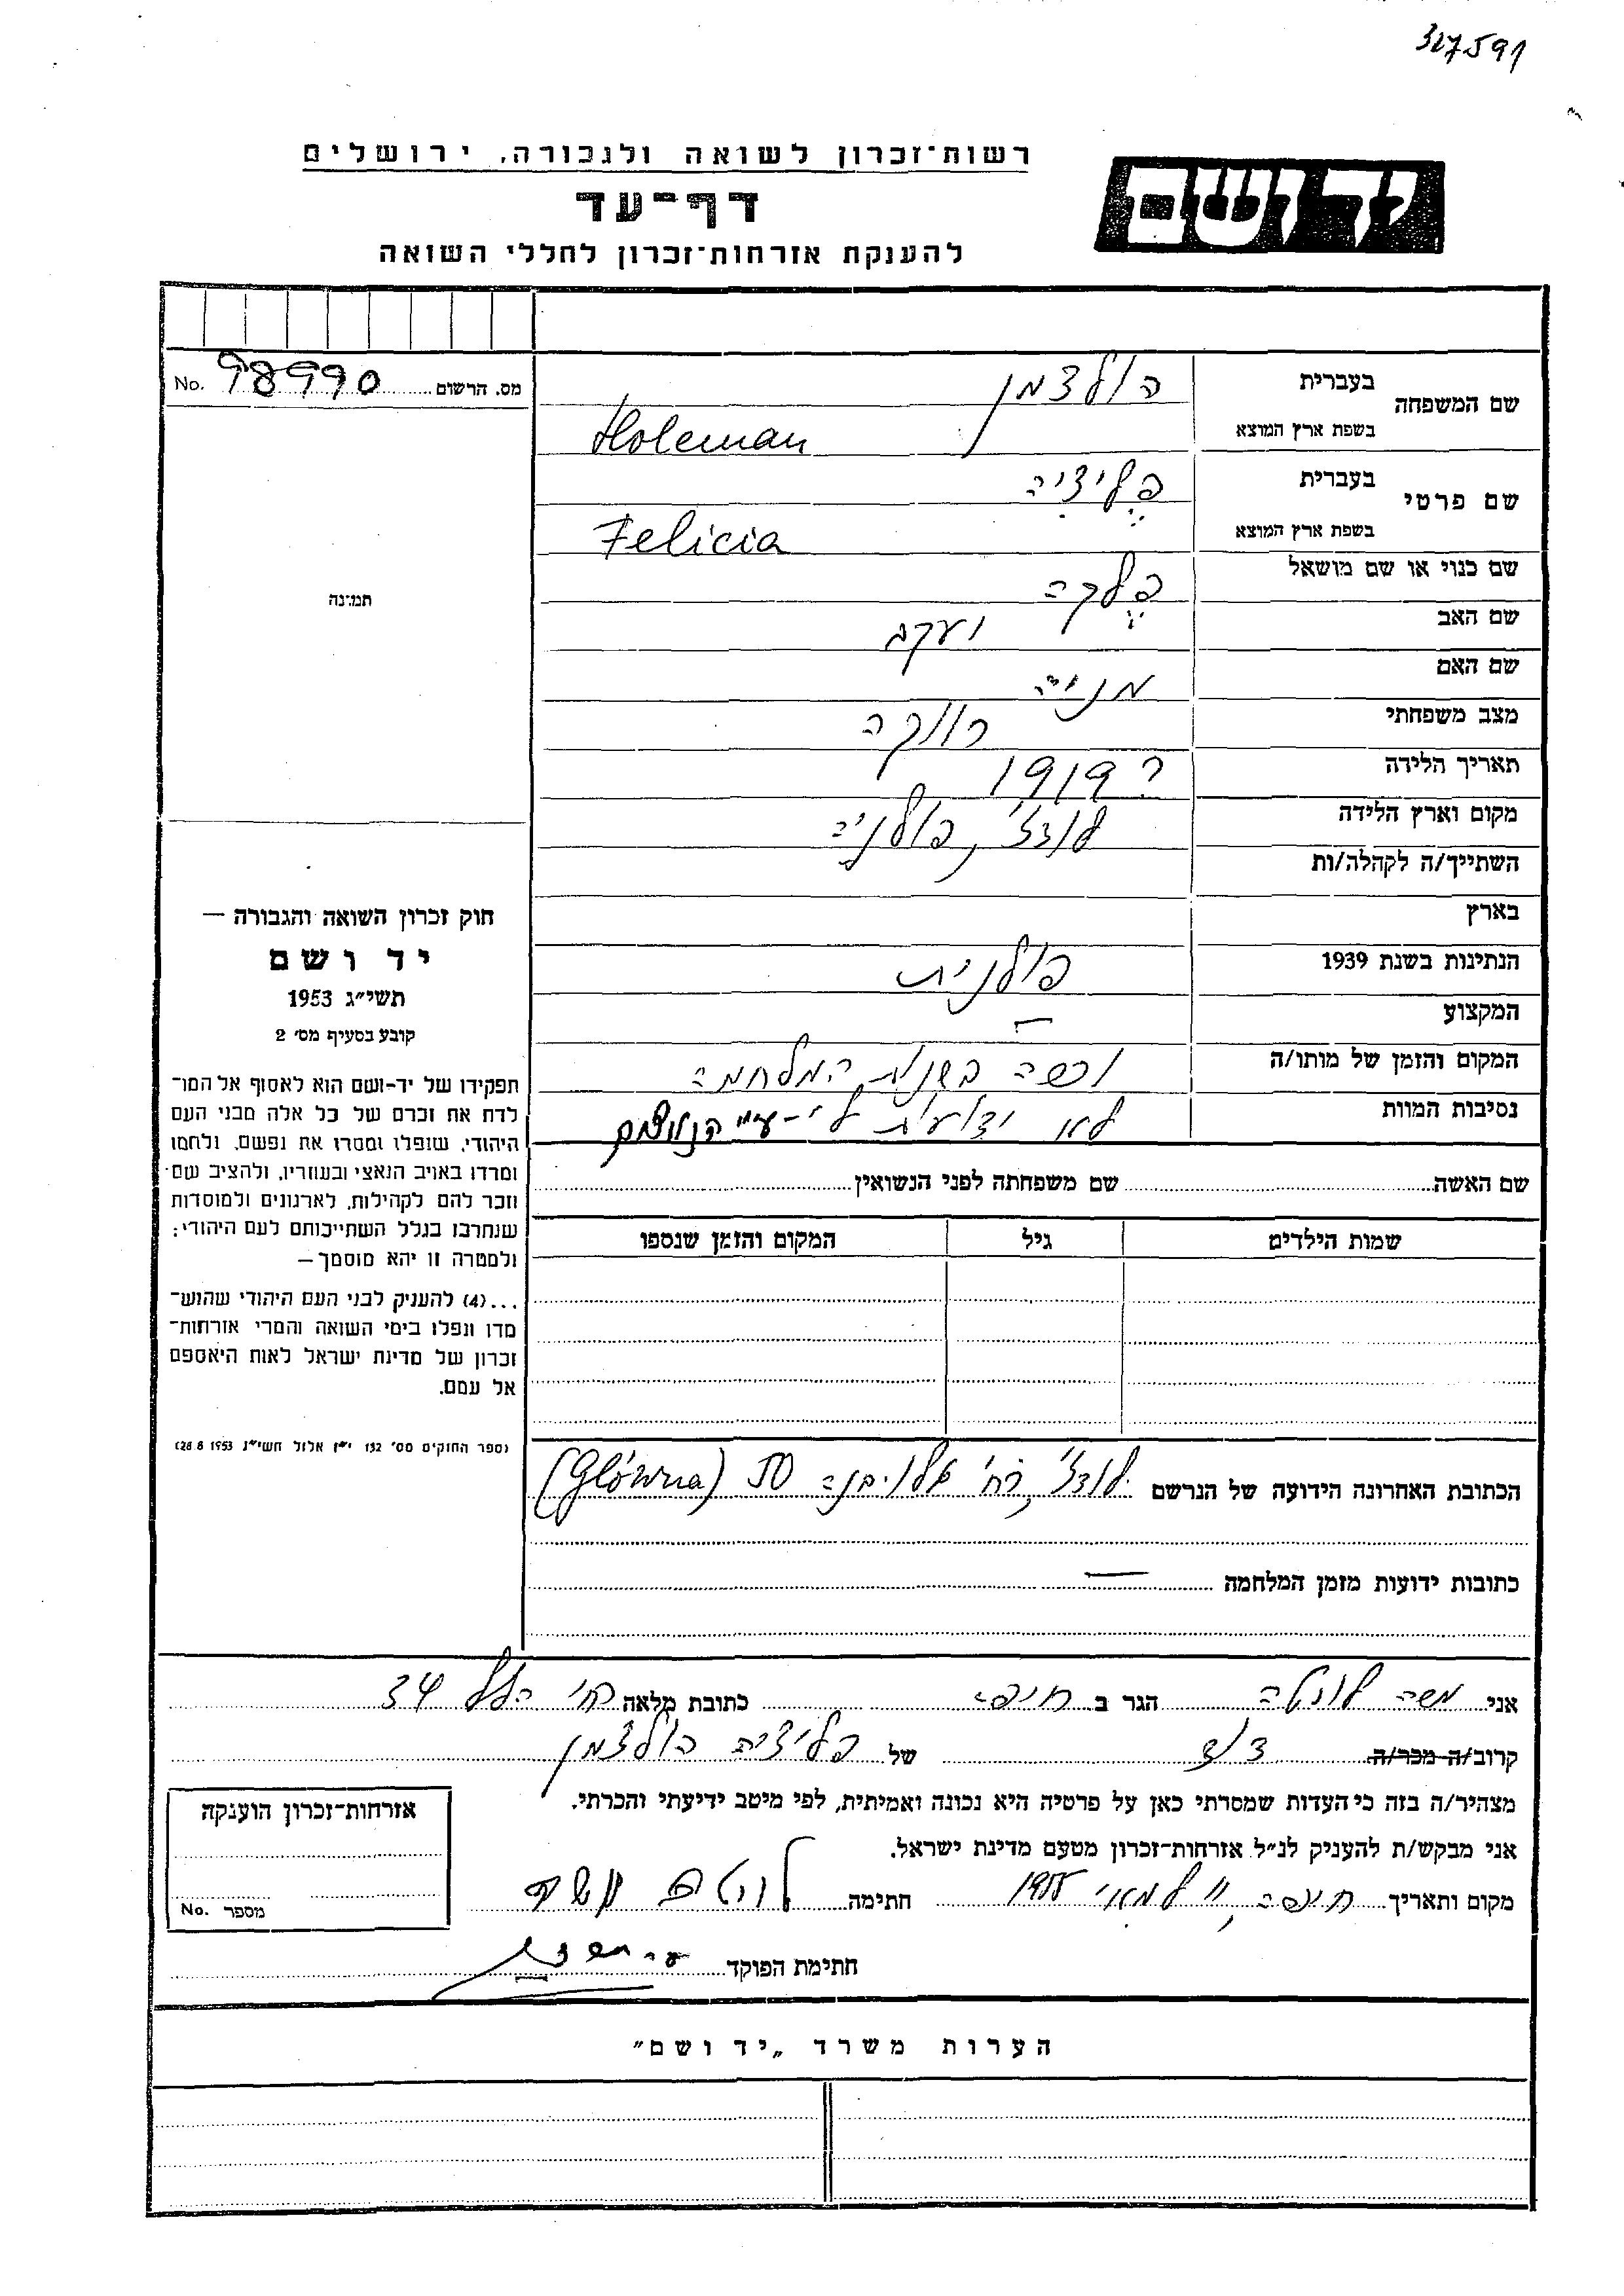 317591
רשות־זכרון לשואה ולגבורה, ירושלים
יד ושם
דף־עד
להענקת אזרחות־זכרון לחללי השואה
מס. הרשום 98990 No.
שם המשפחה
בעברית הולצמן
בשפת ארץ המוצא Holcman
שם פרטי
בעברית פליציה
בשפת ארץ המוצא Felicia
שם כנוי או שם מושאל פלקה
שם האב יעקב
שם האם מניה
מצב משפחתי רווקה
תאריך הלידה ? 1919
מקום וארץ הלידה לודז', פולניה
השתייך/ה לקהלה/ות
בארץ
הנתינות בשנת 1939 פולנית
המקצוע —
המקום והזמן של מותו/ה נספה בשנות המלחמה
נסיבות המוות לא ידועות לי - ע"י הנאצים
שם האשה שם משפחתה לפני הנשואין
שמות הילדים גיל המקום והזמן שנספו
תמונה
חוק זכרון השואה והגבורה —
יד ושם
תשי״ג 1953
קובע בסעיף מס׳ 2
תפקידו של יד-ושם הוא לאסוף אל המו־
לדת את זכרם של כל אלה מבני העם
היהודי, שנפלו ומסרו את נפשם, נלחמו
ומרדו באויב הנאצי ובעוזריו, ולהציב שם
וזכר להם לקהילות, לארגונים ולמוסדות
שנחרבו בגלל השתייכותם לעם היהודי;
ולמטרה זו יהא מוסמך —
...(4) להעניק לבני העם היהודי שהוש־
מדו ונפלו בימי השואה והמרי אזרחות־
זכרון של מדינת ישראל לאות היאספם
אל עמם.
(ספר החוקים מס׳ 132 י״ז אלול תשי״ג 28.8.1953)
הכתובת האחרונה הידועה של הנרשם לודז', רח' גלובנה 50 (Główna)
כתובות ידועות מזמן המלחמה —
אני משה הגר ב חיפה כתובת מלאה רח' הלל 34
קרוב/ה מכר/ה דוד של פליציה הולצמן
מצהיר/ה בזה כי העדות שמסרתי כאן על פרטיה היא נכונה ואמיתית, לפי מיטב ידיעתי והכרתי.
אני מבקש/ת להעניק לנ״ל אזרחות־זכרון מטעם מדינת ישראל.
מקום ותאריך חיפה, למאי חתימה
חתימת הפוקד
אזרחות־זכרון הוענקה
מספר No.
הערות משרד „יד ושם״